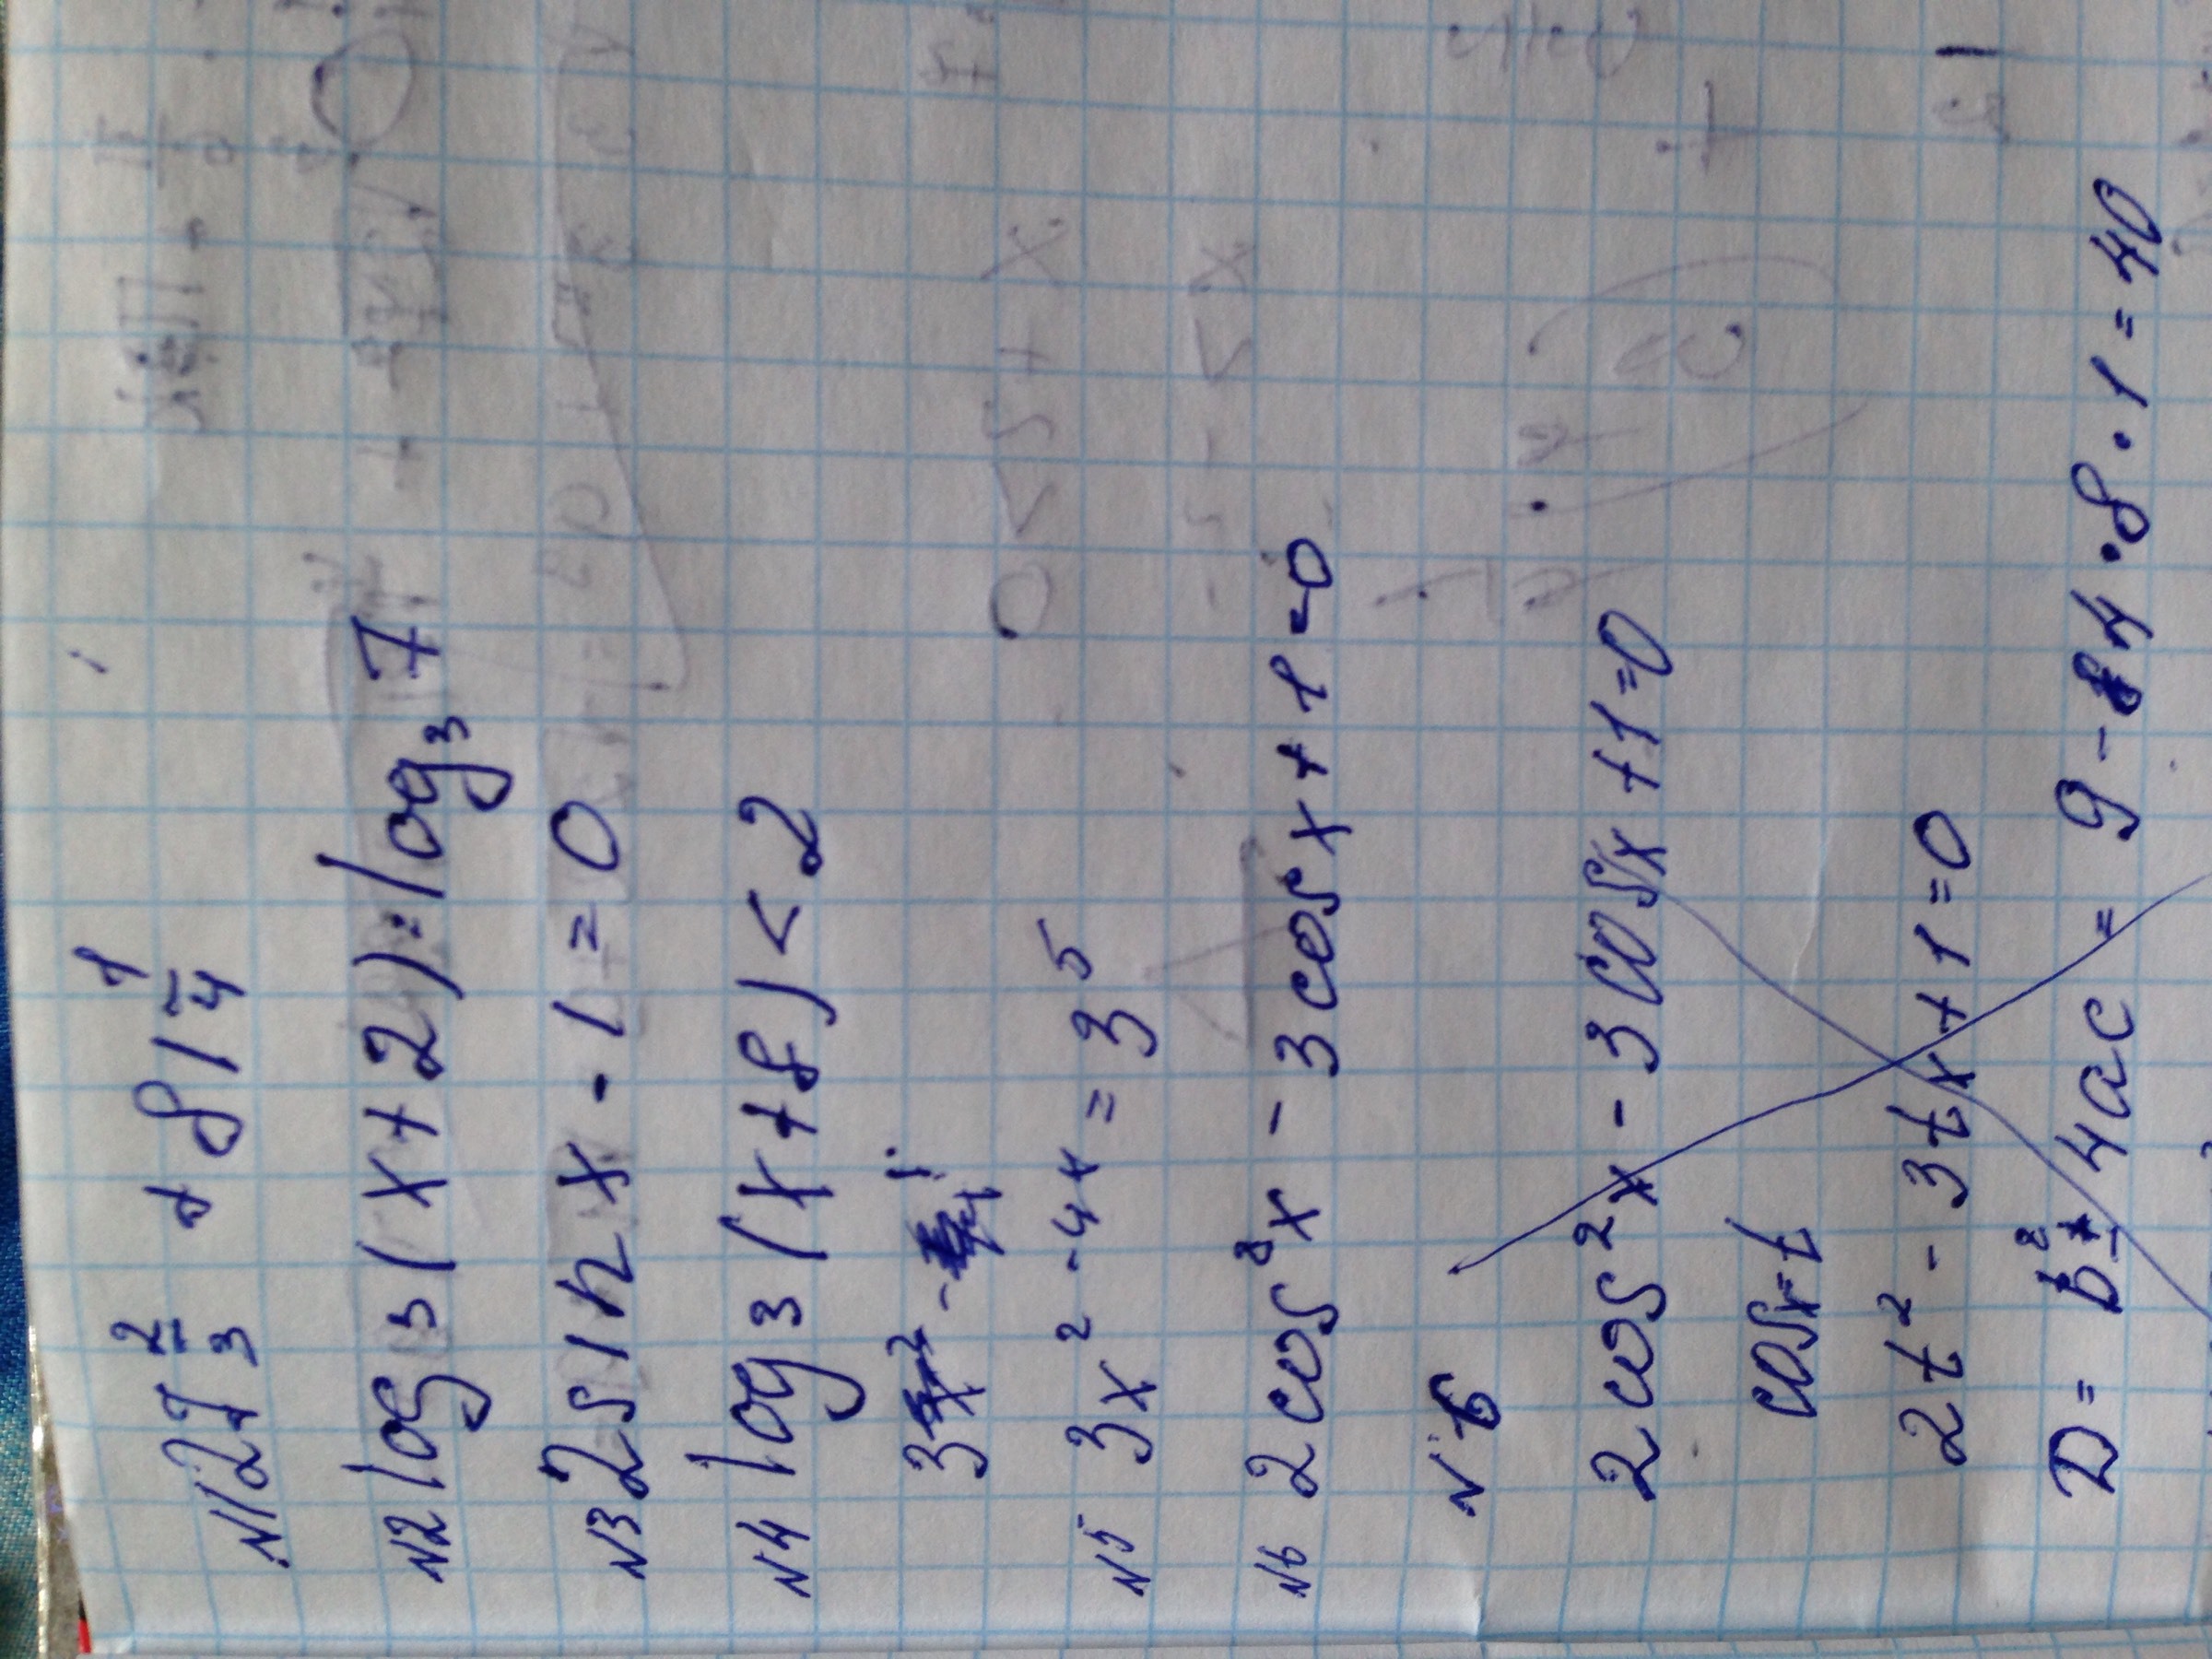 N1 27^(2/3) + 81^(1/4)
N2 log₃(x+2)=log₃7
N3 2sinx-1=0
N4 log₃(x+8)<2
N5 3x²-4x=3⁵
N6 2cos²x-3cosx+1=0
N6
2cos²x-3cosx+1=0
cosx=t
2t²-3tx+1=0
D=b²-4ac=9-4·8·1=40